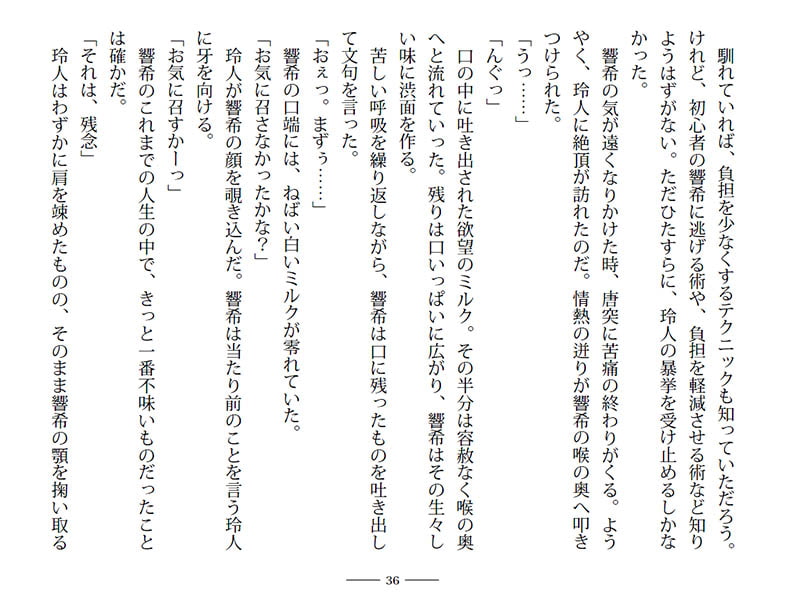 馴れていれば、負担を少なくするテクニックも知っていただろう。
けれど、初心者の響希に逃げる術や、負担を軽減させる術など知り
ようはずがない。ただひたすらに、玲人の暴挙を受け止めるしかな
かった。
響希の気が遠くなりかけた時、唐突に苦痛の終わりがくる。よう
やく、玲人に絶頂が訪れたのだ。情熱の迸りが響希の喉の奥へ叩き
つけられた。
「うっ……」
「んぐっ」
口の中に吐き出された欲望のミルク。その半分は容赦なく喉の奥
へと流れていった。残りは口いっぱいに広がり、響希はその生々し
い味に渋面を作る。
苦しい呼吸を繰り返しながら、響希は口に残ったものを吐き出し
て文句を言った。
「おぇっ。まずぅ……」
響希の口端には、ねばい白いミルクが零れていた。
「お気に召さなかったかな？」
玲人が響希の顔を覗き込んだ。響希は当たり前のことを言う玲人
に牙を向ける。
「お気に召すかーっ」
響希のこれまでの人生の中で、きっと一番不味いものだったこと
は確かだ。
「それは、残念」
玲人はわずかに肩を竦めたものの、そのまま響希の顎を掬い取る
36